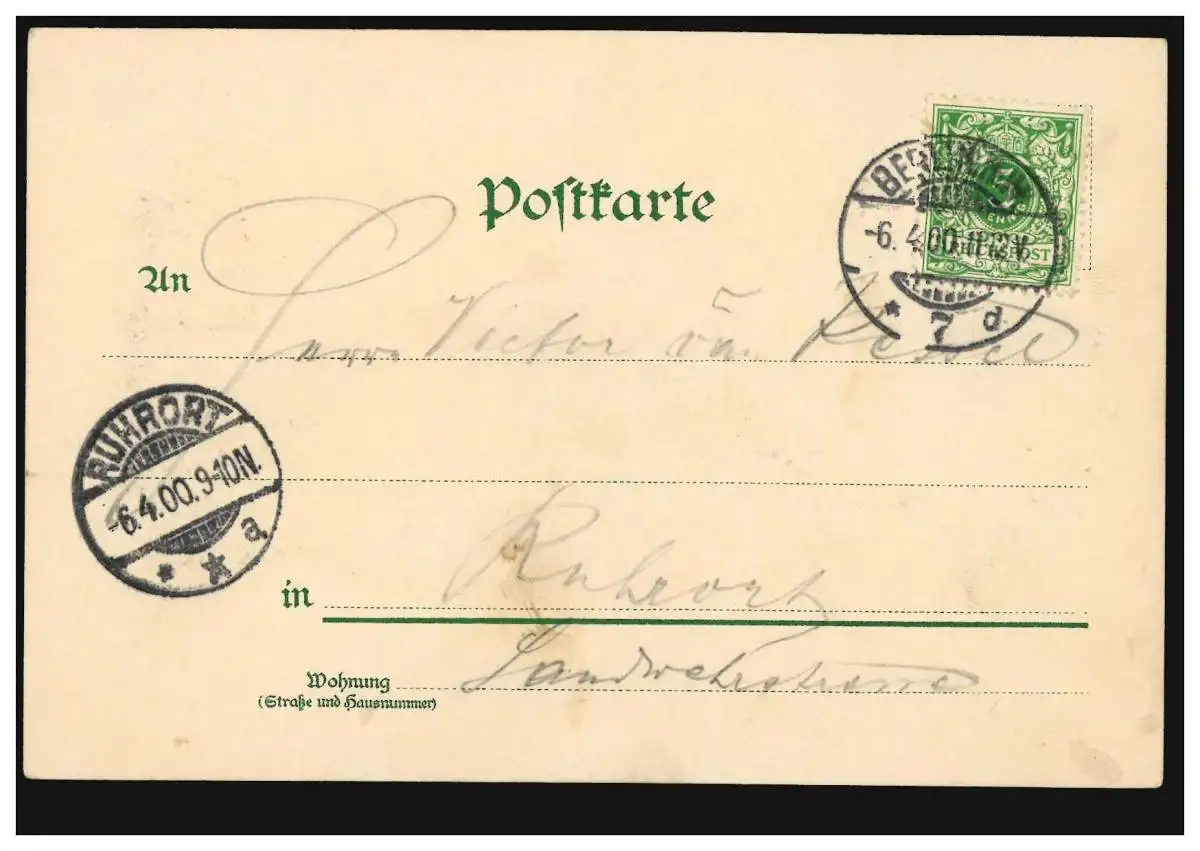 Postkarte
An
Herrn Victor van Kessel
in Ruhrort
Wohnung Landwehrstrasse
(Straße und Hausnummer)
BERLIN
-6.4.00.11-12V.
* 7 d
5
REICHSPOST
RUHRORT
-6.4.00.9-10N.
* * a